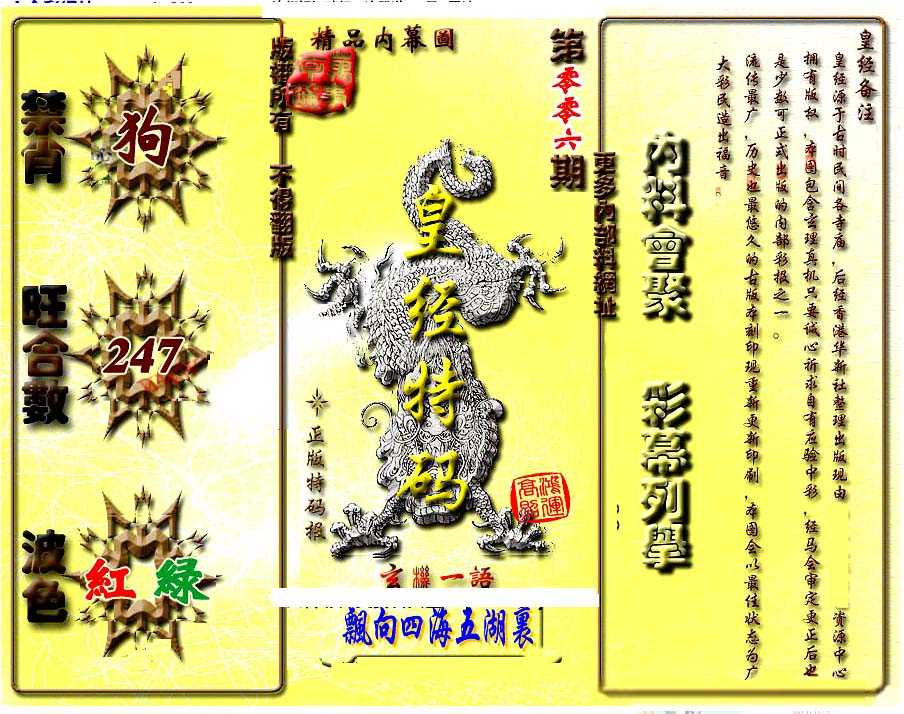 精品内幕圖
第零零六期
版權所有 不得翻版
更多内部料網址
禁肖
狗
旺合數
247
波色
紅 綠
皇经特码
正版特码报
鴻運高照
玄機一語
飄向四海五湖裏
内料會聚 彩幕列舉
皇经备注
皇经源于古时民间各寺庙,后经香港华新社整理出版现由 资源中心
拥有版权,本图包含玄理真机只要诚心祈求自有应验中彩,经马会审定更正后也
是少数可正式出版的内部彩报之一。
流传最广,历史也最悠久的古版本刻印现重新更新印刷,本图会以最佳状态为广
大彩民造出福音。